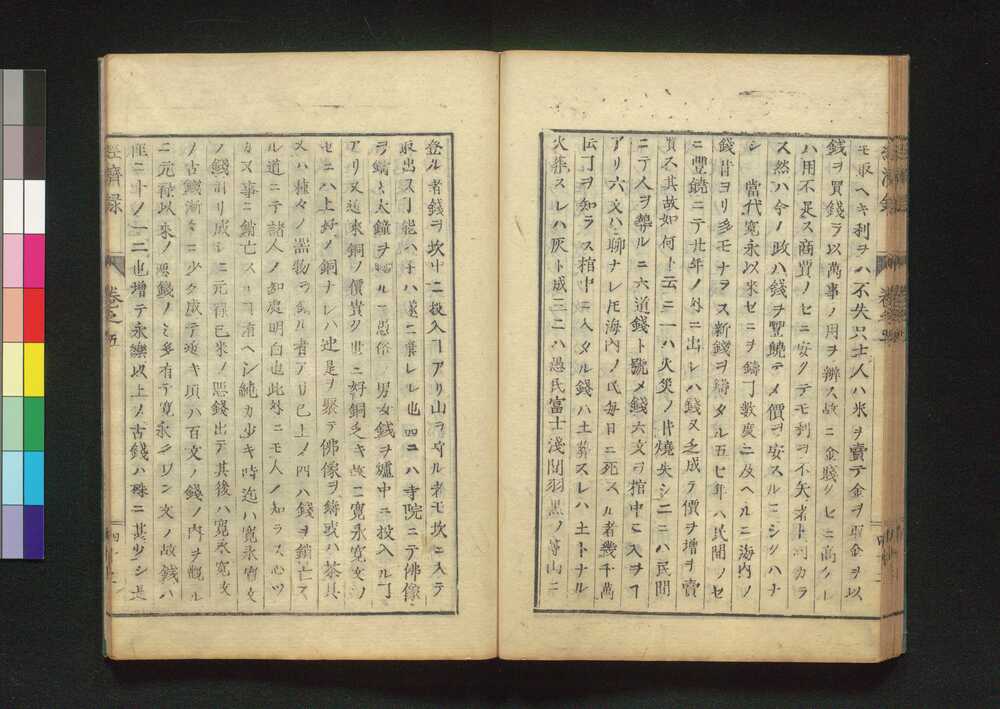 モ取ヘキ利ヲハ不失只士人ハ米ヲ賣テ金ヲ取金ヲ以
錢ヲ買錢ヲ以萬事ノ用ヲ辨ス故ニ金賤クヒニ高ケレ
ハ用不足ス商賈ノヒニ安クテモ利ヲ不失者ト同カラ
ス然ハ今ノ政ハ錢ヲ豐饒テメ價ヲ安スルニシクハナ
シ 當代寛永以来セニヲ鑄丁數度ニ及ヘルニ海内ノ
錢昔ヨリ多モナヲス新錢ヲ鑄タル五七年ハ民間ノセ
ニ豐饒ニテ廿年ノ外ニ出レハ錢又乏成テ價ヲ増ヲ賣
買ス其故如何ト云ニ一ハ火災ノ片燒失シ二ニハ民間
ニテ人ヲ葬ルニ六道錢ト號メ錢六文ヲ棺中ニ入ヲ
アリ六文ハ聊ナレ𪜈海内ノ民毎日ニ死スル者幾千萬
伝丁ヲ知ラス棺中ニ入タル錢ハ土葬スレハ土トナル
火葬スレハ灰ト成三ニハ愚民富士淺間羽黒ノ等山ニ
登ル者錢ヲ坎中ニ投入ヿアリ山ヲ守ル者モ坎ニ入テ
取出ス丁能ハ子ハ遂ニ棄レル也四ニハ寺院ニテ佛像
ヲ鑄太鐘ヲ鑄ルニ愚俗ノ男女錢ヲ爐中ニ投入ル丁
アリ又近来銅ノ價貴ク世ニ好銅乏キ故ニ寛永寛文ノ
セニハ上好ノ銅ナレハ迚是ヲ聚テ佛像ヲ鑄或ハ茶具
又ハ種々ノ噐物ヲ アリ已上ノ四ハ錢ヲ銷亡ス
ル道ニテ諸人ノ知處明白也此外ニモ人ノ知ラス心ツ
カヌ事ニ銷亡スルヿ有ヘシ純カ少キ時迄ハ寛永寛文
ノ錢計リ成シニ元禄已来ノ悪錢出テ其後ハ寛永寛文
ノ古錢漸々ニ少ク成テ近キ頃ハ百文ノ錢ノ内ヲ覩ル
ニ元禄以来ノ悪錢ノミ多有テ寛永 文ノ故錢ハ
僅ニ十ノ一二也増テ永樂以上ノ古錢ハ殊ニ其少シ是
經濟録
卷之五